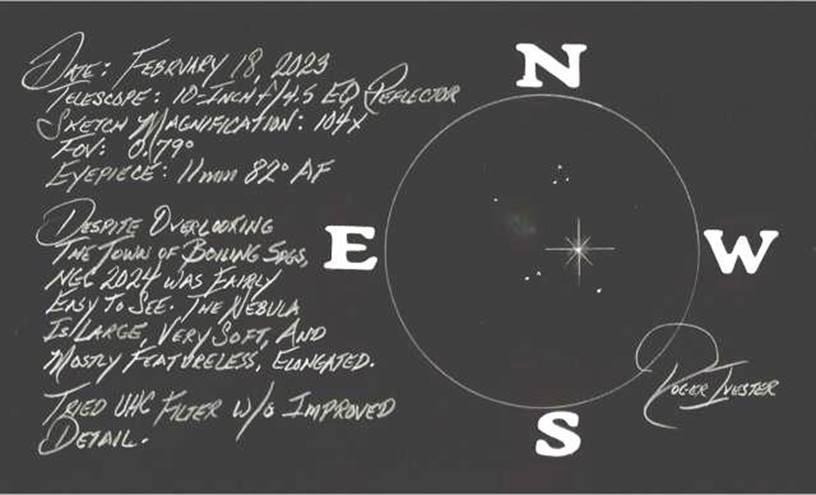 Date: February 18, 2023
Telescope: 10-Inch f/4.5 EQ Reflector
Sketch Magnification: 104x
Fov: 0.79°
Eyepiece: 11mm 82° AF
Despite Overlooking
The Town of Boiling Spgs,
NGC 2024 was Fairly
Easy To See. The Nebula
Is Large, Very Soft, And
Mostly Featureless, Elongated.
Tried UHC Filter w/o Improved
Detail.
N
E
W
S
Roger Ivester